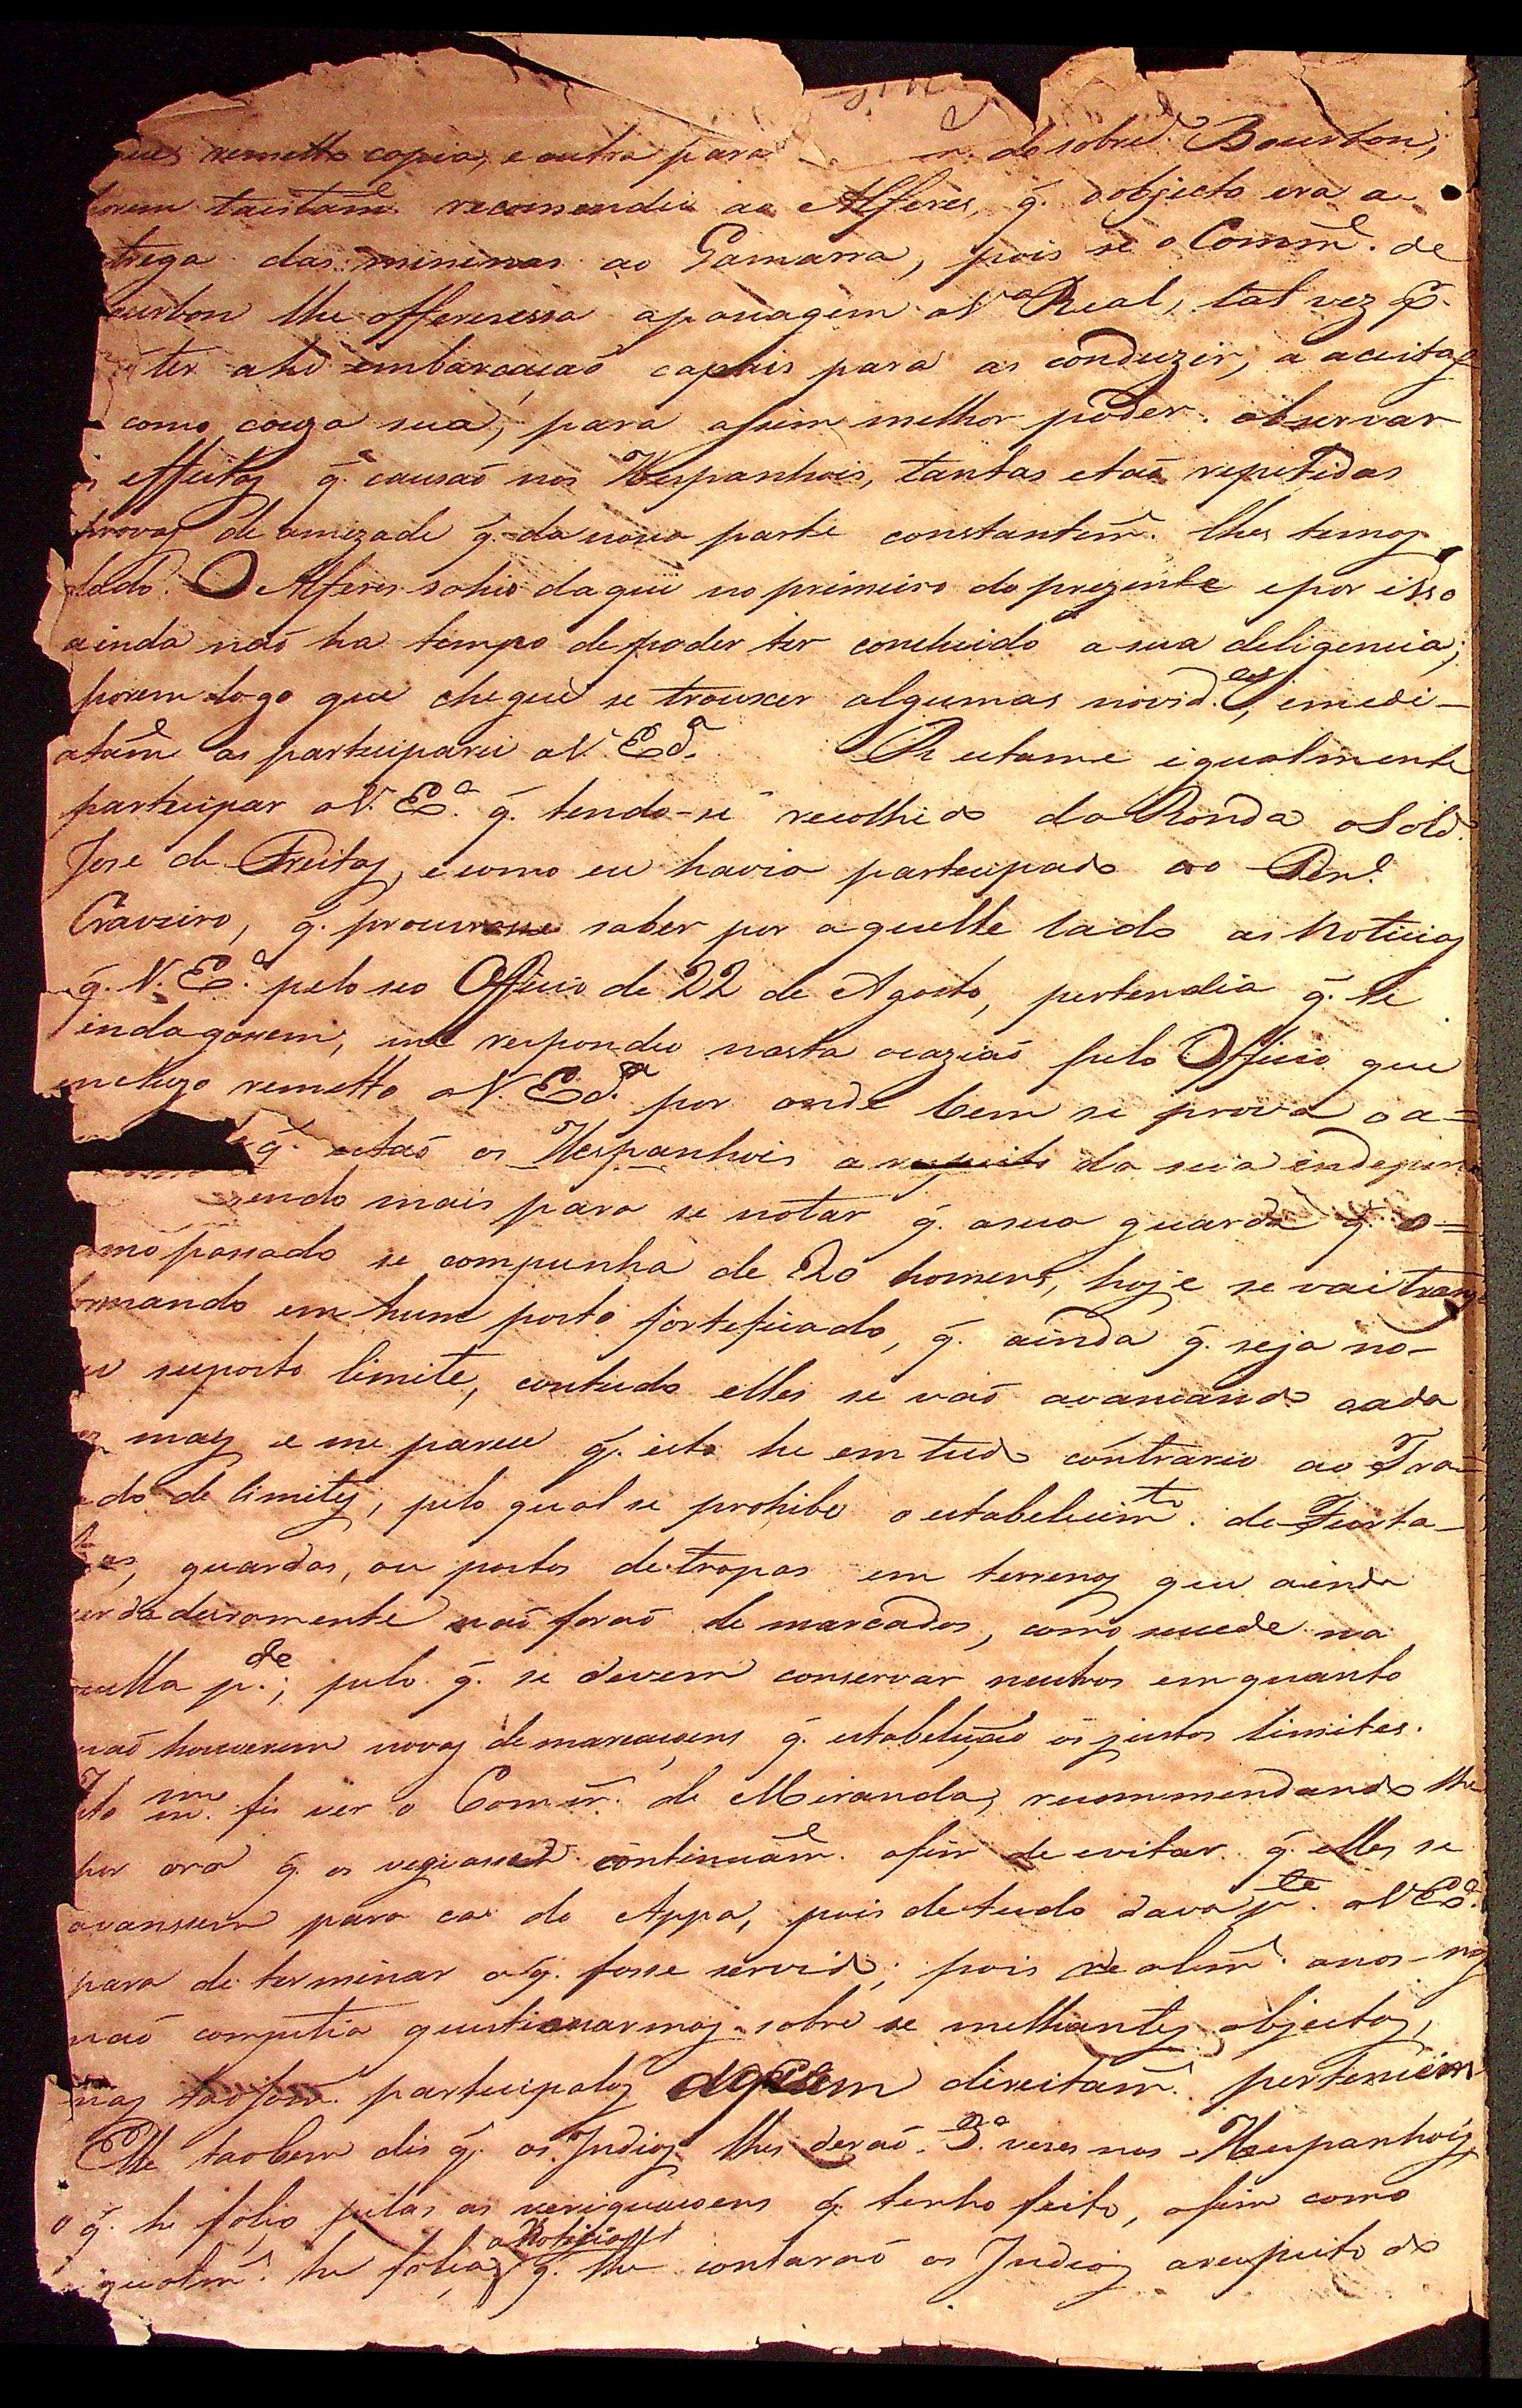 remetto copia, e outra para de sobred.º Bourbon,
porem tacitam.e recomendei ao Alferes, q̃. o objecto era a
trega das mininas ao Gamarra, pois se o Comm.e de
ourbon lhe offeresessa aponagem a V.a Real, tal vez p.
ter ahi embarcaçaõ capais para as conduzir, a aceitaçe
como couza sua, para asim melhor poder observar
effeitos q̃. causaõ nos Hespanhois, tantas e taõ repetidas
provas de amizade q̃. da nossa parte constantem.e lhes temos
dado. O Alferes sahio daqui no primeiro do prezente e por isso
ainda naõ ha tempo de poder ter concluido a sua deligencia;
porem logo que chegue se trouxer algumas novid.es, emedi-
atam.e as participarei a V. Ex.a Restame igualmente
participar a V. Ex.a q̃. tendo-se recolhido da Ronda o Sold.
Jose de Freitas, e como eu havia partecipado ao
Craveiro, q̃. procurasse saber por aquelle lado as Noticias
q̃. V. Ex.a pelo seo Officio de 22 de Agosto, pertendia q̃. se
indagassem, me respondeo nasta ocaziaõ pelo Officio que
incluzo remetto a V. Ex.a por onde bem se prova o a=
q̃. estaõ os Hespanhois a respeito da sua endepen
endo mais para se notar q̃. a sua guarda q̃. o=
mo passado se compunha de 20 homens, hoje se vai trans
formando em hum posto forteficado, q̃. ainda q̃. seja no-
seu suposto limite, contudo elles se vaõ avancando cada
mais e me parece q̃. isto he em tudo contrario ao Tra-
ado de limites, pelo qual se prohibe o estabelecim.to de Forta-
as, guardas, ou postos de tropas em terrenos que ainda
verdadeiramente naõ foraõ demarcados, como sucede na
quella p.te; pelo q̃. se devem conservar neutros emquanto
naõ houverem novas demarcacoens q̃. estabeleçaõ os justos limites.
Isto mm.o fis ver o Comm.e de Miranda, recommendando lhe
por ora q̃. os vegiasse continuam.e afim de evitar q̃. elles se
avansem para ca do Appa, pois de tudo dava p.te a V. Ex.a
para determinar o q̃. fosse servido; pois realm.e anos-nos
naõ competia questionarmos sobre semelhantes objectos,
mas taõ som.e participalos aquem direitam.e pertencem
Elle taobem dis q̃. os Indios lhes deraõ 3.a veses nos Hespanhois,
o q̃. he falso pelas as veriguacoens q̃. tenho feito, asim como
a Noticia
igualm.e he falsa q̃. lhe contaraõ os Indios a respeito do